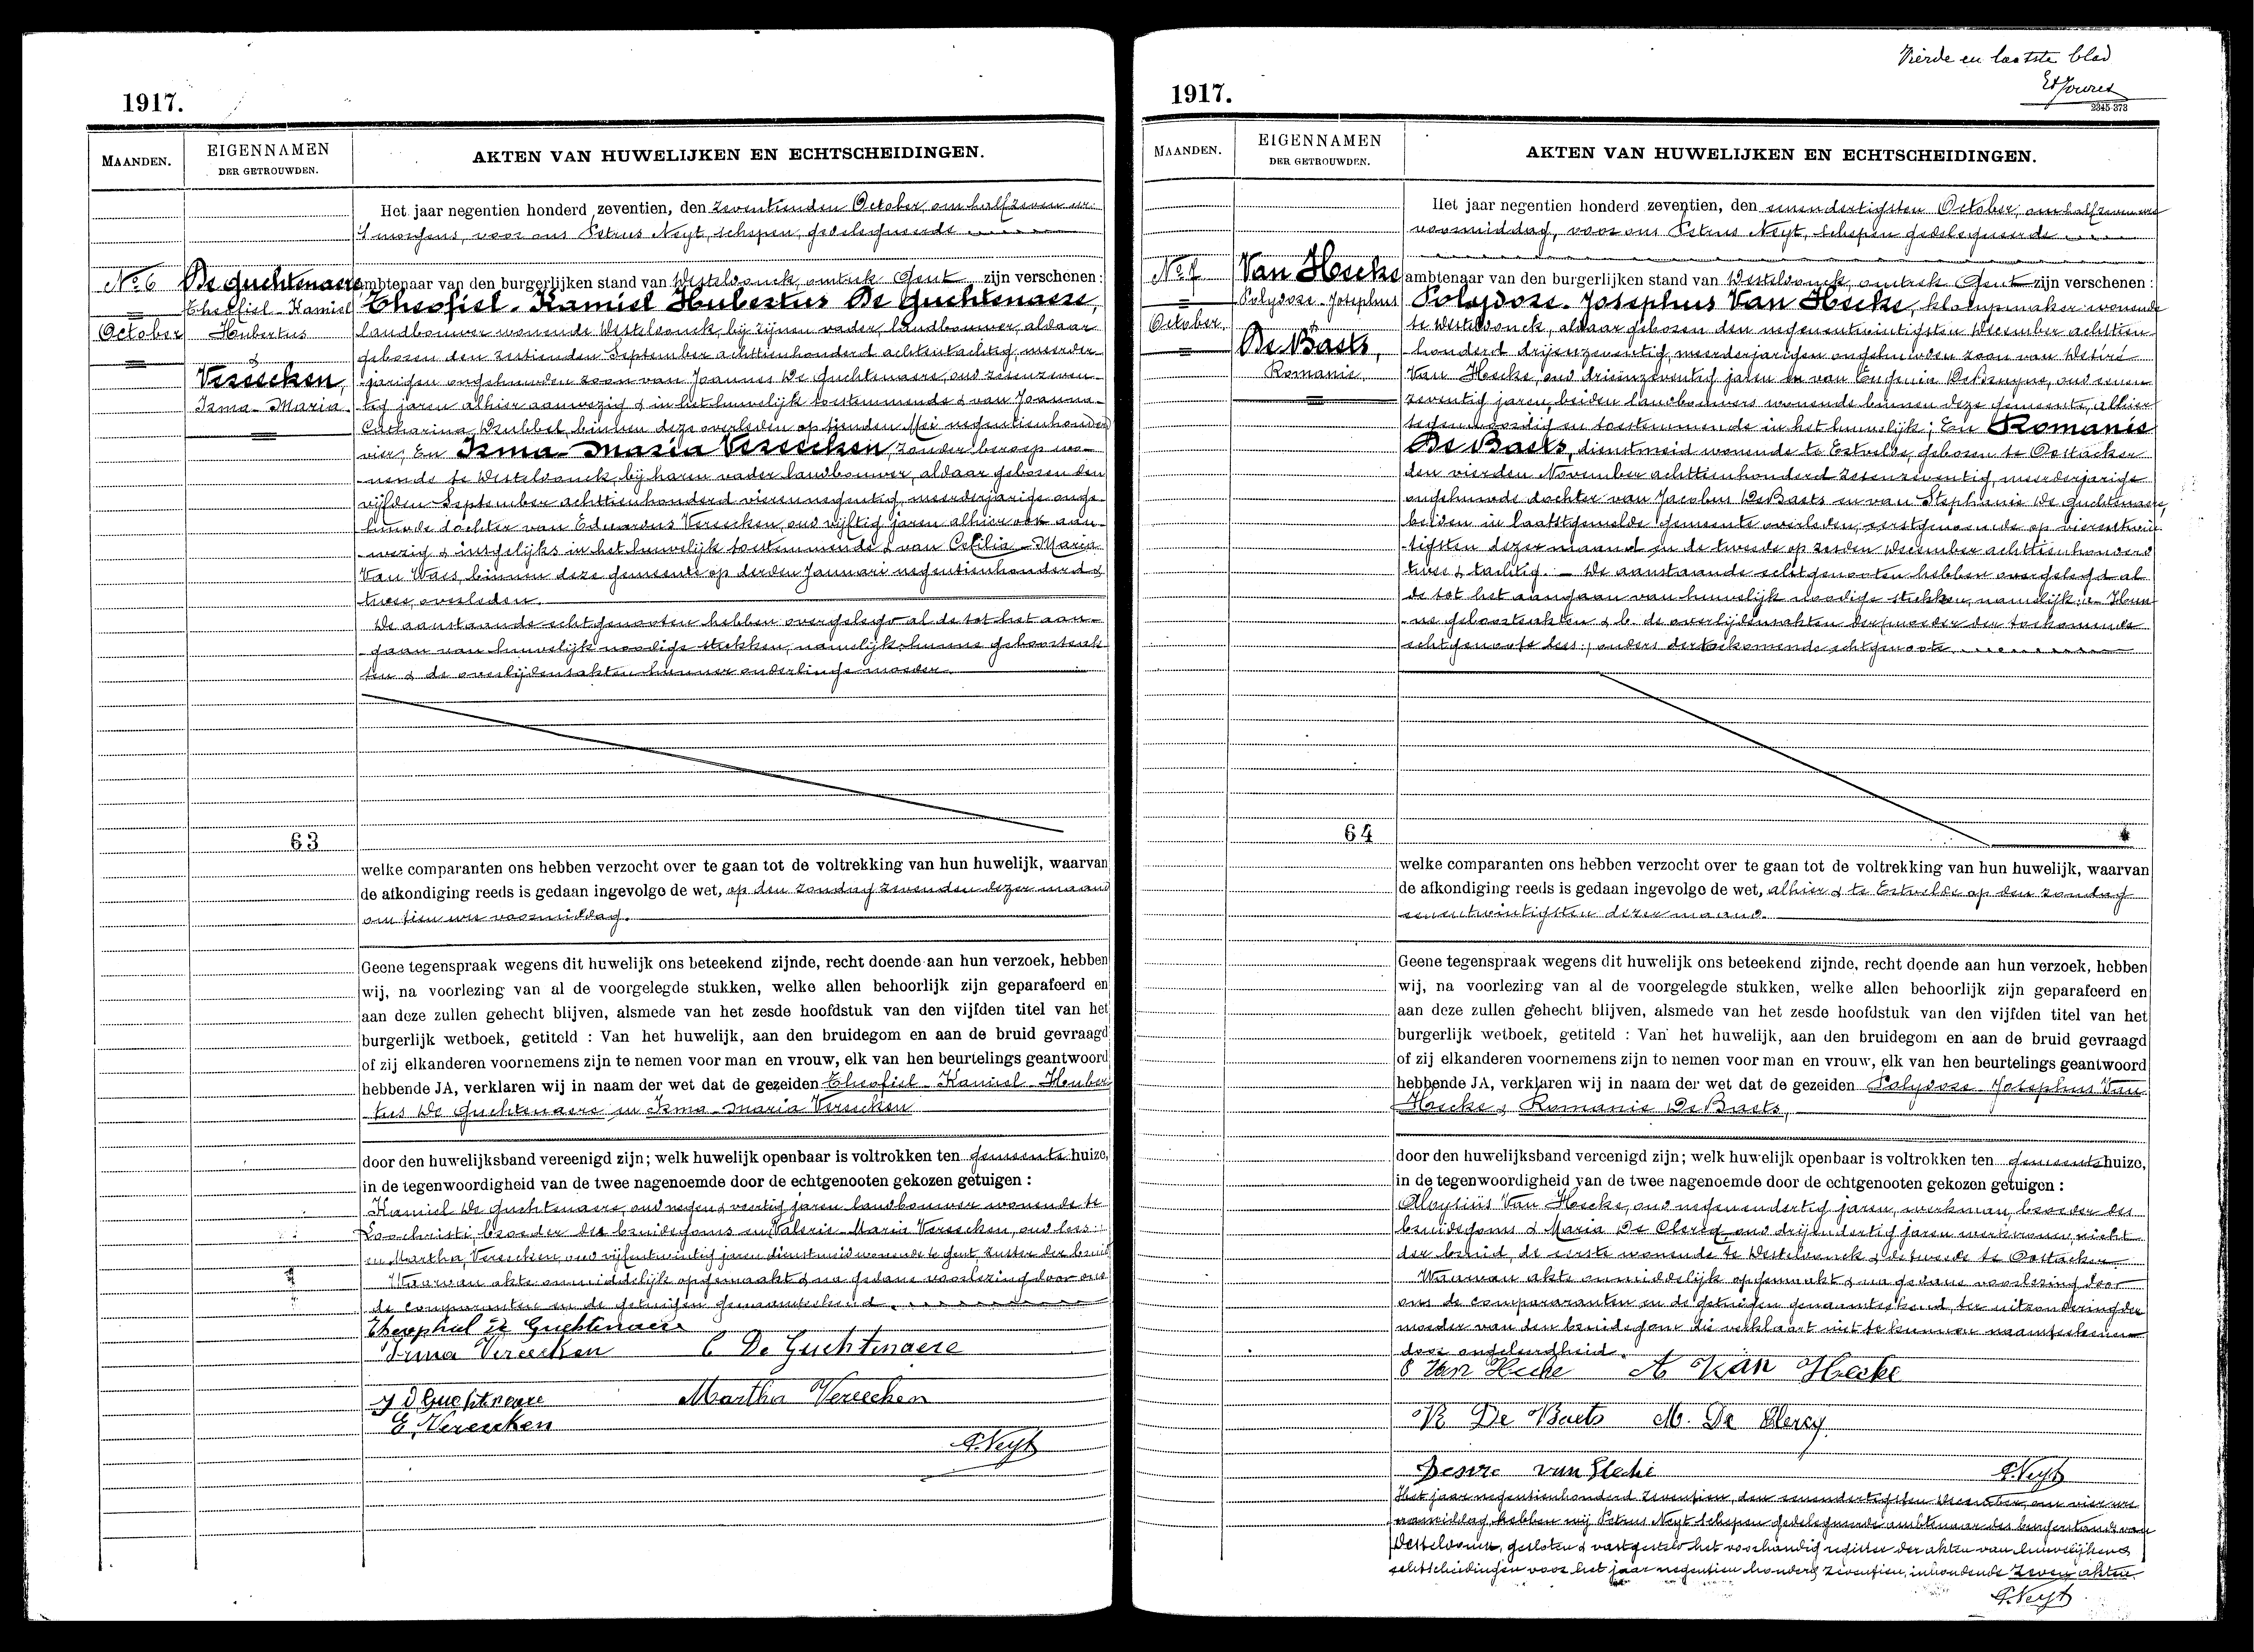 1917.
MAANDEN.
EIGENNAMEN
DER GETROUWDEN.
AKTEN VAN HUWELIJKEN EN ECHTSCHEIDINGEN.
Het jaar negentien honderd zeventien, den zeventienden October, om half zeven ure
'S morgens, voor ons Petrus Neyt, schepen, gedelegueerde
No 6
De Guchtenaere
ambtenaar van den burgerlijken stand van Desteldonck, omtrek Gent zijn verschenen :
Theofiel-Kamiel
Theofiel-Kamiel Hubertus De Guchtenaere,
October
Hubertus
landbouwer wonende Desteldonck, bij zijnen vader, landbouwer, aldaar
&
geboren den zestienden September achttienhonderd achtentachtig, meerder-
Vereecken,
jarigen ongehuwden zoon van Joannes De Guchtenaere, oud zevenzeven-
Irma-Maria.
tig jaren alhier aanwezig & in het huwelijk toestemmende & van Joanna-
Catharina binnen deze overleden op tienden Mei negentienhonderd
vier; En Irma-Maria Vereecken, zonder beroep wo-
nende te Desteldonck, bij haren vader landbouwer, aldaar geboren den
vijfden September achttienhonderd vierennegentig, meerderjarige onge-
huwde dochter van Eduardus Vereecken, oud vijftig jaren alhier ook aan-
wezig & insgelijks in het huwelijk toestemmende & van Cecilia-Maria
Van Waes, binnen deze gemeente op derden Januari negentienhonderd &
twee, overleden.
De aanstaande echtgenooten hebben overgelegd al de tot het aan-
gaan van huwelijk noodige stukken, namelijk: hunne geboorteak-
ten & de overlijdensakten hunner onderlinge moeder.
63
welke comparanten ons hebben verzocht over te gaan tot de voltrekking van hun huwelijk, waarvan
de afkondiging reeds is gedaan ingevolge de wet, op den zondag zevenden dezer maand
om tien ure voormiddag.
Geene tegenspraak wegens dit huwelijk ons beteekend zijnde, recht doende aan hun verzoek, hebben
wij, na voorlezing van al de voorgelegde stukken, welke allen behoorlijk zijn geparafeerd en
aan deze zullen gehecht blijven, alsmede van het zesde hoofdstuk van den vijfden titel van het
burgerlijk wetboek, getiteld : Van het huwelijk, aan den bruidegom en aan de bruid gevraagd
of zij elkanderen voornemens zijn te nemen voor man en vrouw, elk van hen beurtelings geantwoord
hebbende JA, verklaren wij in naam der wet dat de gezeiden Theofiel-Kamiel-Huber
tus De Guchtenaere en Irma-Maria Vereecken
door den huwelijksband vereenigd zijn; welk huwelijk openbaar is voltrokken ten gemeente huize,
in de tegenwoordigheid van de twee nagenoemde door de echtgenooten gekozen getuigen :
Kamiel De Guchtenaere, oud negen & veertig jaren landbouwer wonende te
Loochristi, broeder des bruidegoms en Valerie-Maria Vereecken, oud lees:
en Martha, Vereecken, oud vijfentwintig jaren dienstmeid wonende te Gent, zuster der bruid
Waarvan akte onmiddelijk opgemaakt & na gedane voorlezing door ons
de comparanten en de getuigen genaamteekend.
Theophiel De Guchtenaere
Irma Vereecken C De Guchtenaere
J D Guchtnaere Martha Vereecken
E. Vereecken
P. Neyt
Vierde en laatste blad
2345 373
1917.
MAANDEN.
EIGENNAMEN
DER GETROUWDEN.
AKTEN VAN HUWELIJKEN EN ECHTSCHEIDINGEN.
Het jaar negentien honderd zeventien, den eenendertigsten October, om half zeven ure
voormiddag, voor ons Petrus Neyt, schepen gedelegueerde
No 7
Van Hecke
ambtenaar van den burgerlijken stand van Desteldonck, omtrek Gent zijn verschenen :
Polydore-Josephus
Polydore-Josephus Van Hecke, kloempmaker wonende
October.
te Desteldonck, aldaar geboren den negenentwintigsten December achttien-
&
De Baets,
honderd drijenzeventig, meerderjarigen ongehuwden zoon van Desiré
Romanie.
Van Hecke, oud drieënzeventig jaren en van Eugenia De Bruyne, oud eenen
zeventig jaren, beiden landbouwers wonende binnen deze gemeente, alhier
tegenwoordig en toestemmende in het huwelijk; En Romanie
De Baets, dienstmeid wonende te Ertvelde, geboren te Oostacker
den vierden November achttienhonderd zesenzeventig, meerderjarige
ongehuwde dochter van Jacobus De Baets en van Stephanie De Guchtenaere,
beiden in laatstgemelde gemeente overleden, eerstgenoemde op vierentwin-
tigsten dezer maand en de tweede op zesden December achttienhonderd
twee & tachtig. - De aanstaande echtgenooten hebben overgelegd al
de tot het aangaan van huwelijk noodige stukken, namelijk: a- Hun-
ne geboorteakten & b. de overlijdensakten der moeder der toekomende
echtgenoote lees: ouders der toekomende echtgenoote.
64
welke comparanten ons hebben verzocht over te gaan tot de voltrekking van hun huwelijk, waarvan
de afkondiging reeds is gedaan ingevolge de wet, alhier & te Ertvelde op den zondag
eenentwintigsten dezer maand.
Geene tegenspraak wegens dit huwelijk ons beteekend zijnde, recht doende aan hun verzoek, hebben
wij, na voorlezing van al de voorgelegde stukken, welke allen behoorlijk zijn geparafeerd en
aan deze zullen gehecht blijven, alsmede van het zesde hoofdstuk van den vijfden titel van het
burgerlijk wetboek, getiteld : Van het huwelijk, aan den bruidegom en aan de bruid gevraagd
of zij elkanderen voornemens zijn te nemen voor man en vrouw, elk van hen beurtelings geantwoord
hebbende JA, verklaren wij in naam der wet dat de gezeiden Polydore-Josephus Van
Hecke & Romanie De Baets,
door den huwelijksband vereenigd zijn; welk huwelijk openbaar is voltrokken ten gemeentehuize,
in de tegenwoordigheid van de twee nagenoemde door de echtgenooten gekozen getuigen :
Aloysiüs Van Hecke, oud negenendertig jaren, werkman, broeder des
bruidegoms & Maria De Clercq, oud drijendertig jaren werkvrouw, nicht
der bruid, de eerste wonende te Desteldonck & de tweede te Oostacker
Waarvan akte onmiddelijk opgemaakt & na gedane voorlezing door
ons de compararanten en de getuigen genaamteekend, ter uitzondering der
moeder van den bruidegom die verklaart niet te kunnen naamteekenen
door ongeleerdheid.
Van Hecke A Van Hecke
R De Baets M. De Clercq
Desire van Hecke P. Neyt
Het jaar negentienhonderd zeventien, den eenendertigsten December, om vier ure
namiddag, hebben wij Petrus Neyt schepen gedelegueerde ambtenaar des burgerstands van
Desteldonck, gesloten & vastgesteld het voorhandig register der akten van huwelijken &
echtscheidingen voor het jaar negentien honderd zeventien, inhoudende zeven akten.
P. Neyt